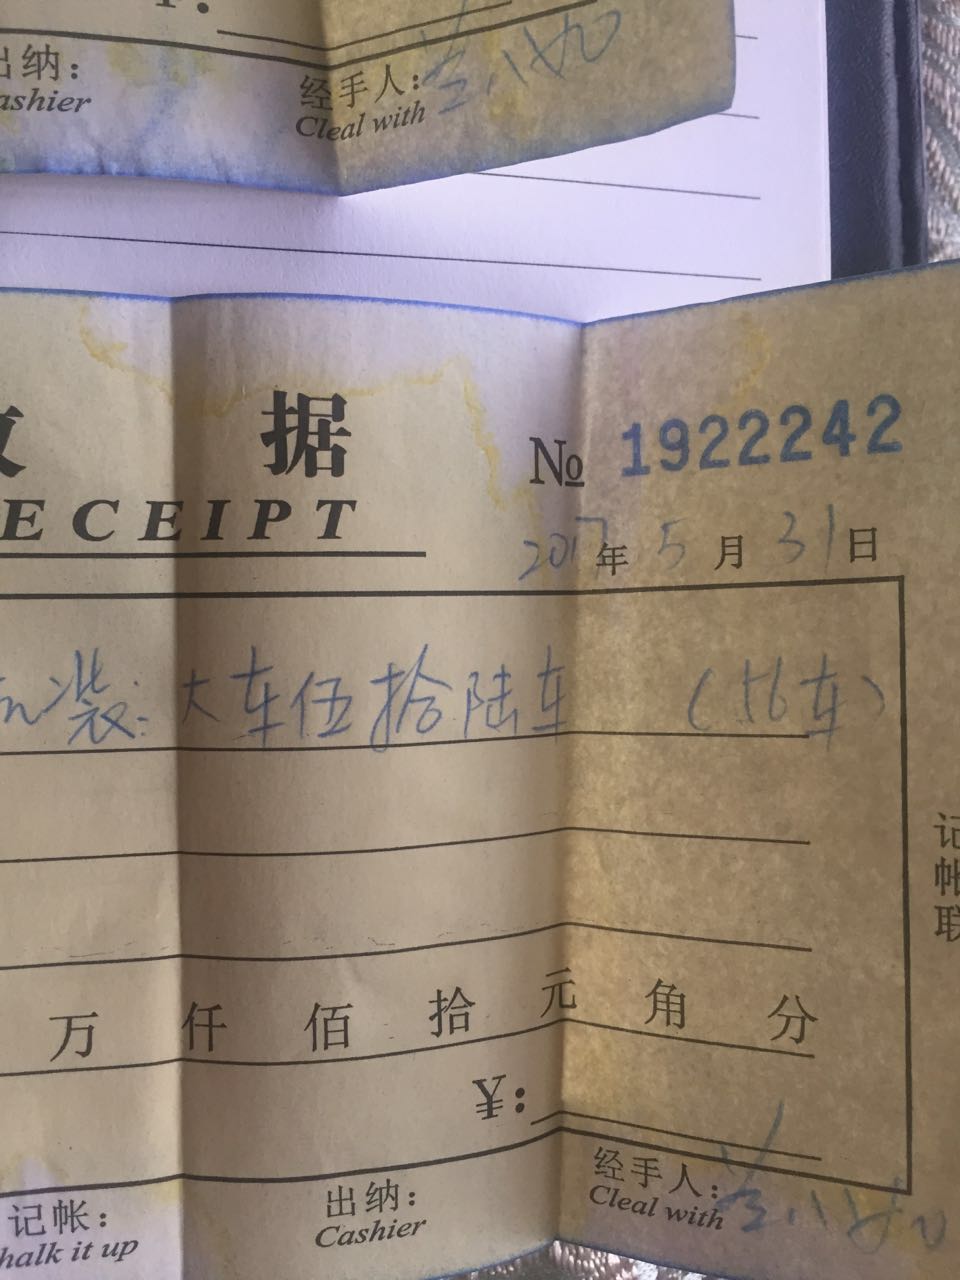 出纳：
ashier
经手人：
Cleal with
据
ECEIPT
№ 1922242
2017年 5 月 31 日
装：大车伍拾陆车 （56车）
万 仟 佰 拾 元 角 分
¥：
记帐：
halk it up
出纳：
Cashier
经手人：
Cleal with
记帐联